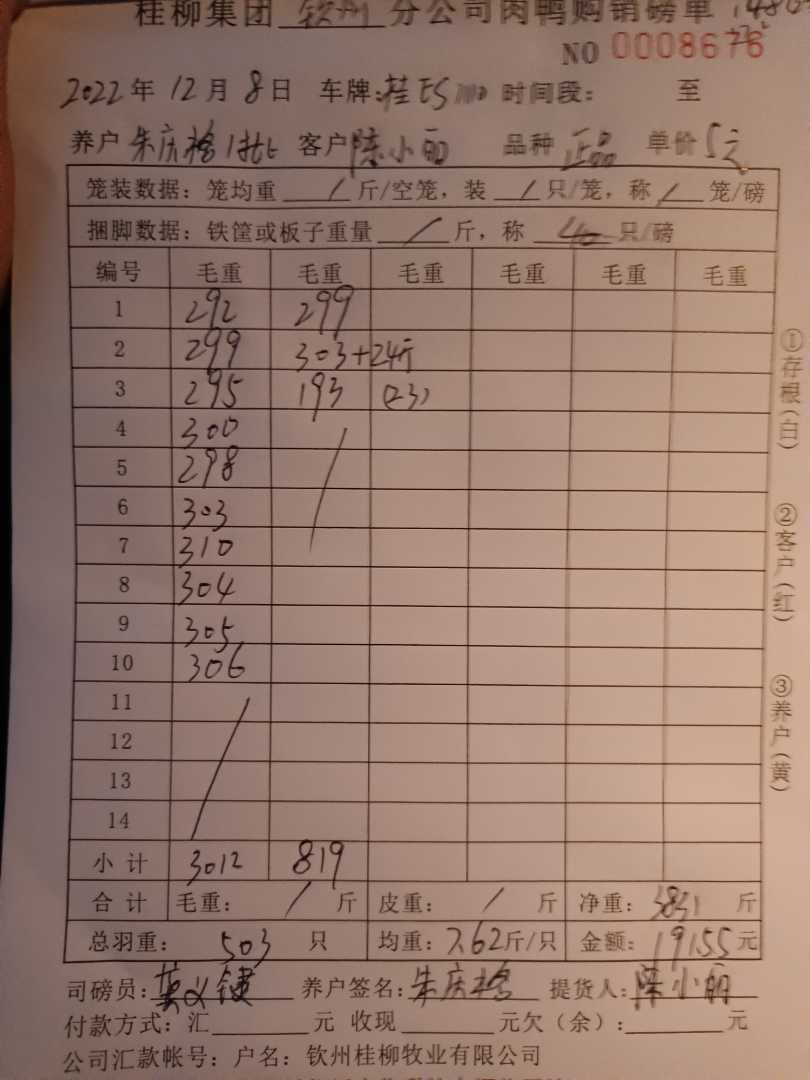 桂柳集团 钦州 分公司肉鸭购销磅单
NO 0008676
2022年 12月 8日 车牌: 时间段: 至
养户 朱庆 客户 陈小丽 品种 正品 单价 5元
笼装数据: 笼均重 / 斤/空笼, 装 / 只/笼, 称 / 笼/磅
捆脚数据: 铁筐或板子重量 / 斤, 称 40 只/磅
编号 毛重 毛重 毛重 毛重 毛重 毛重
1 292 299
2 299 303+24斤
3 295 193 (23)
4 300
5 298
6 303
7 310
8 304
9 305
10 306
11
12
13
14
小计 3012 819
合计 毛重: / 斤 皮重: / 斤 净重: 3831 斤
总羽重: 503 只 均重: 7.62斤/只 金额: 19155元
司磅员: 养户签名: 朱庆 提货人: 陈小丽
付款方式: 汇 元 收现 元欠(余): 元
公司汇款帐号: 户名: 钦州桂柳牧业有限公司
①存根(白) ②客户(红) ③养户(黄)